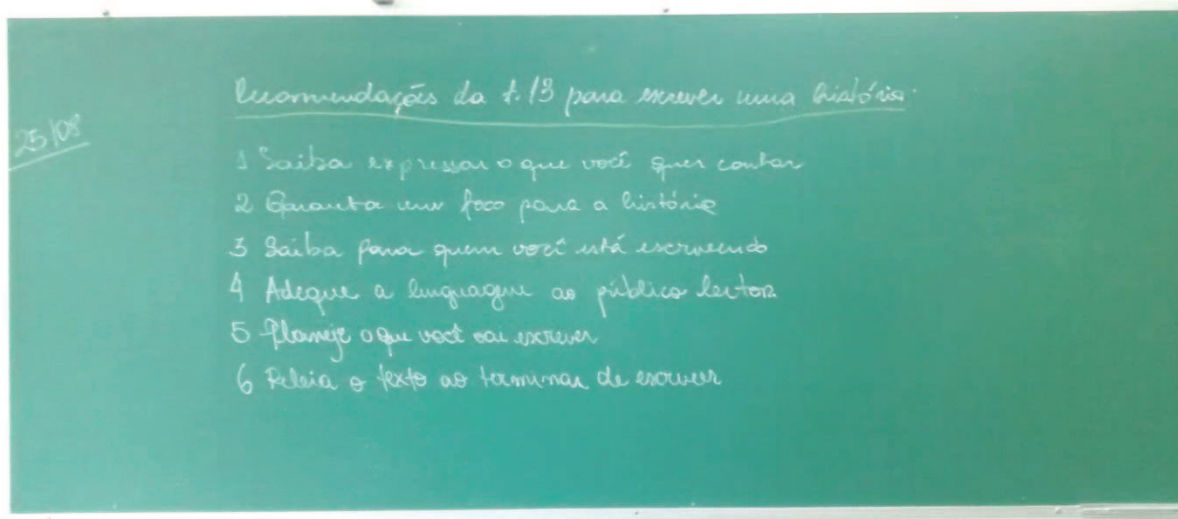 Recomendações da t.13 para escrever uma história.
25/08
1 Saiba expressar o que você quer contar
2 Garanta um foco para a história
3 Saiba para quem você está escrevendo
4 Adeque a linguagem ao público leitor.
5 Planeje o que você vai escrever
6 Releia o texto ao terminar de escrever